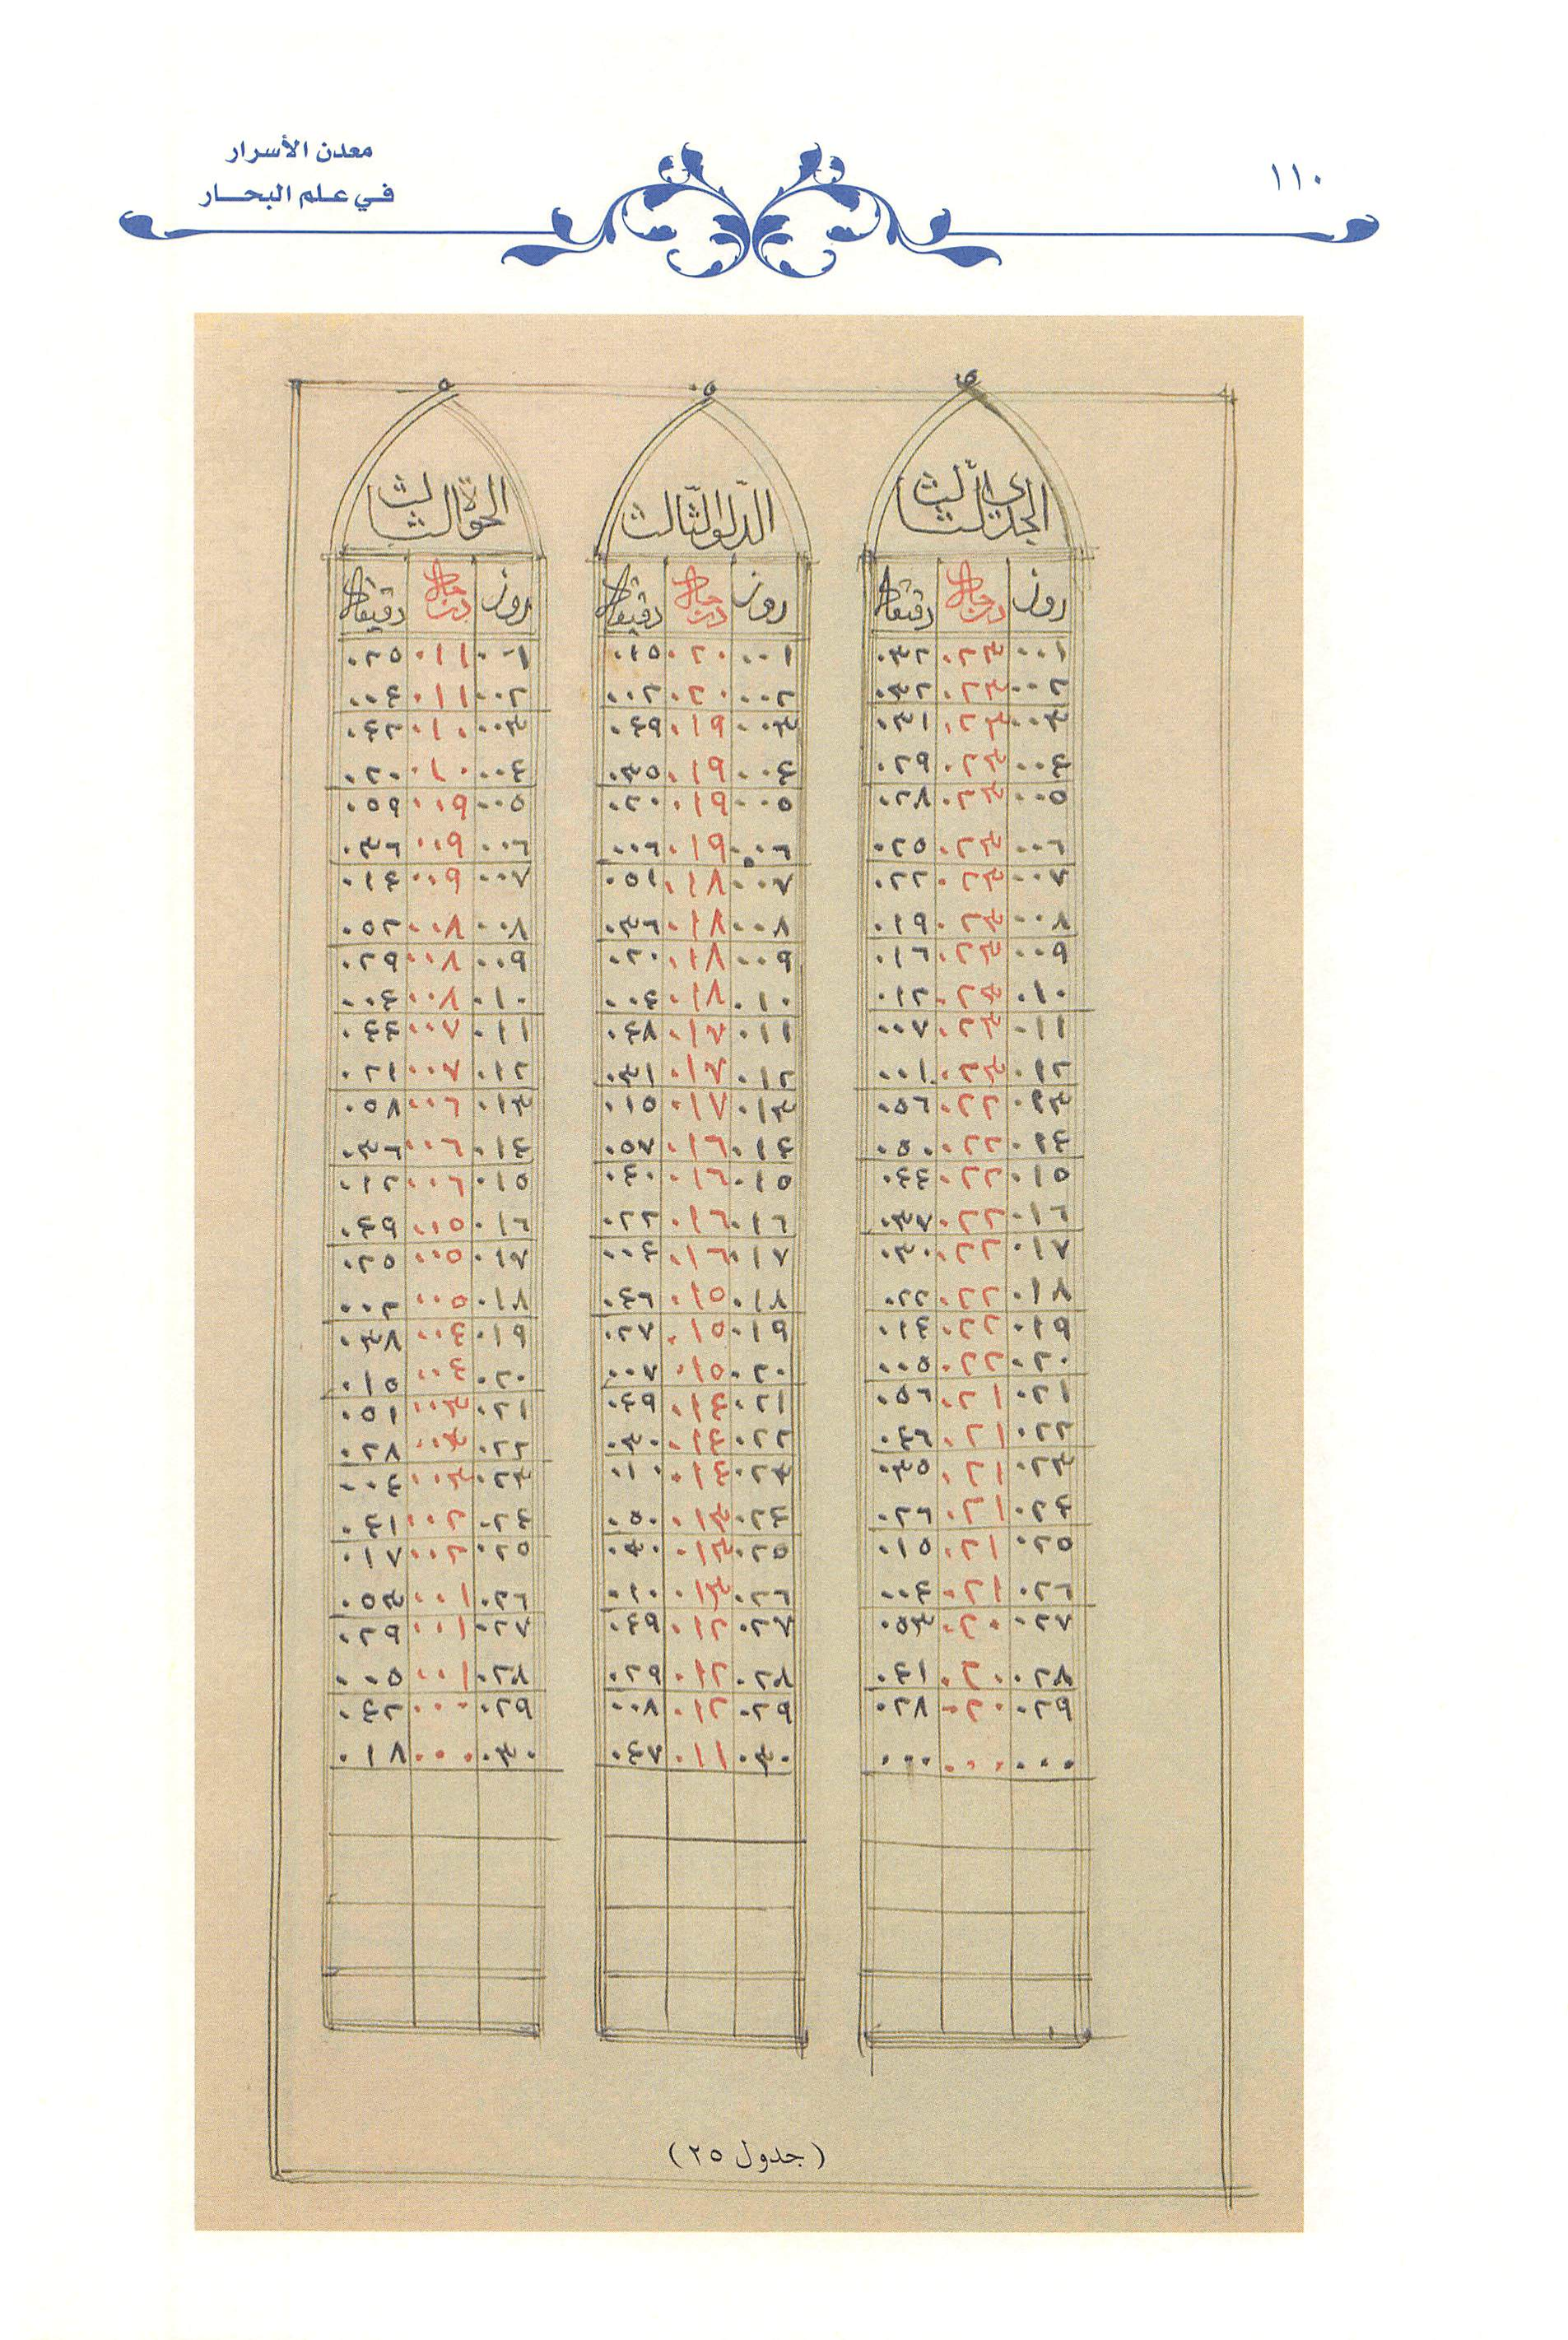 ١١٠
معدن الأسرار
في علم البحار
الجدي الثالث
روز درجات دقيقات
٠٠١ ٠٢٣ ٠٣٢
٠٠٢ ٠٢٣ ٠٣٢
٠٠٣ ٠٢٣ ٠٣١
٠٠٤ ٠٢٣ ٠٢٩
٠٠٥ ٠٢٣ ٠٢٨
٠٠٦ ٠٢٣ ٠٢٥
٠٠٧ ٠٢٣ ٠٢٢
٠٠٨ ٠٢٣ ٠١٩
٠٠٩ ٠٢٣ ٠١٦
٠١٠ ٠٢٣ ٠١٢
٠١١ ٠٢٣ ٠٠٧
٠١٢ ٠٢٣ ٠٠١
٠١٣ ٠٢٢ ٠٥٦
٠١٤ ٠٢٢ ٠٥٠
٠١٥ ٠٢٢ ٠٤٤
٠١٦ ٠٢٢ ٠٣٧
٠١٧ ٠٢٢ ٠٣٠
٠١٨ ٠٢٢ ٠٢٢
٠١٩ ٠٢٢ ٠١٤
٠٢٠ ٠٢٢ ٠٠٥
٠٢١ ٠٢١ ٠٥٦
٠٢٢ ٠٢١ ٠٤٦
٠٢٣ ٠٢١ ٠٣٥
٠٢٤ ٠٢١ ٠٢٦
٠٢٥ ٠٢١ ٠١٥
٠٢٦ ٠٢١ ٠٠٤
٠٢٧ ٠٢٠ ٠٥٣
٠٢٨ ٠٢٠ ٠٤١
٠٢٩ ٠٢٠ ٠٢٨
٠٠٠ ٠٠٠ ٠٠٠
الدّلو الثّالث
روز درجات دقيقات
٠٠١ ٠٢٠ ٠١٥
٠٠٢ ٠٢٠ ٠٠٢
٠٠٣ ٠١٩ ٠٤٩
٠٠٤ ٠١٩ ٠٣٥
٠٠٥ ٠١٩ ٠٢٠
٠٠٦ ٠١٩ ٠٠٦
٠٠٧ ٠١٨ ٠٥١
٠٠٨ ٠١٨ ٠٣٦
٠٠٩ ٠١٨ ٠٢٠
٠١٠ ٠١٨ ٠٠٤
٠١١ ٠١٧ ٠٤٨
٠١٢ ٠١٧ ٠٣١
٠١٣ ٠١٧ ٠١٥
٠١٤ ٠١٦ ٠٥٧
٠١٥ ٠١٦ ٠٤٠
٠١٦ ٠١٦ ٠٢٢
٠١٧ ٠١٦ ٠٠٤
٠١٨ ٠١٥ ٠٤٦
٠١٩ ٠١٥ ٠٢٧
٠٢٠ ٠١٥ ٠٠٧
٠٢١ ٠١٤ ٠٤٩
٠٢٢ ٠١٤ ٠٣٠
٠٢٣ ٠١٤ ٠١٠
٠٢٤ ٠١٣ ٠٥٠
٠٢٥ ٠١٣ ٠٣٠
٠٢٦ ٠١٣ ٠١٠
٠٢٧ ٠١٢ ٠٤٩
٠٢٨ ٠١٢ ٠٢٩
٠٢٩ ٠١٢ ٠٠٨
٠٣٠ ٠١١ ٠٤٧
الحوة الثالث
روز درجات دقيقات
٠٠١ ٠١١ ٠٢٥
٠٠٢ ٠١١ ٠٠٤
٠٠٣ ٠١٠ ٠٤٢
٠٠٤ ٠١٠ ٠٢٠
٠٠٥ ٠٠٩ ٠٥٩
٠٠٦ ٠٠٩ ٠٣٦
٠٠٧ ٠٠٩ ٠١٤
٠٠٨ ٠٠٨ ٠٥٢
٠٠٩ ٠٠٨ ٠٢٩
٠١٠ ٠٠٨ ٠٠٤
٠١١ ٠٠٧ ٠٤٤
٠١٢ ٠٠٧ ٠٢١
٠١٣ ٠٠٦ ٠٥٨
٠١٤ ٠٠٦ ٠٣٦
٠١٥ ٠٠٦ ٠١٢
٠١٦ ٠٠٥ ٠٤٩
٠١٧ ٠٠٥ ٠٢٥
٠١٨ ٠٠٥ ٠٠٢
٠١٩ ٠٠٤ ٠٣٨
٠٢٠ ٠٠٤ ٠١٥
٠٢١ ٠٠٣ ٠٥١
٠٢٢ ٠٠٣ ٠٢٨
٠٢٣ ٠٠٣ ٠٠٤
٠٢٤ ٠٠٢ ٠٤١
٠٢٥ ٠٠٢ ٠١٧
٠٢٦ ٠٠١ ٠٥٣
٠٢٧ ٠٠١ ٠٢٩
٠٢٨ ٠٠١ ٠٠٥
٠٢٩ ٠٠٠ ٠٤٢
٠٣٠ ٠٠٠ ٠١٨
(جدول ٢٥)